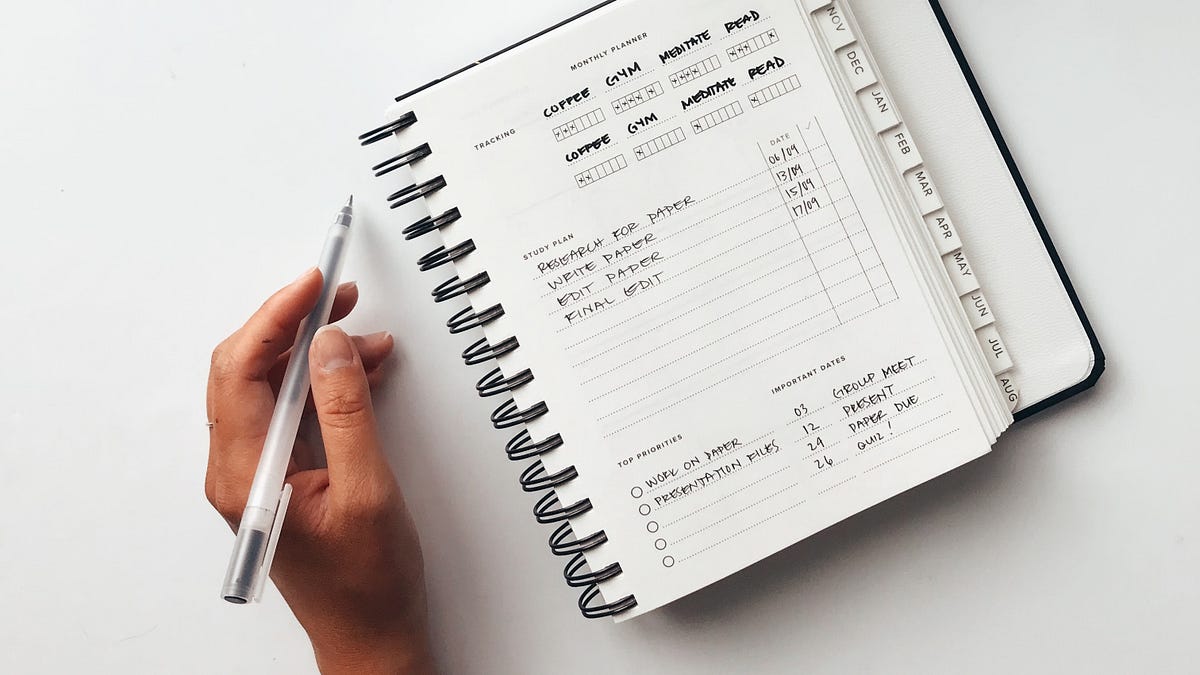 MONTHLY PLANNER
TRACKING
COFFEE GYM MEDITATE READ
COFFEE GYM MEDITATE READ
STUDY PLAN DATE ✓
RESEARCH FOR PAPER 06/09
WRITE PAPER 13/09
EDIT PAPER 15/09
FINAL EDIT 17/09
TOP PRIORITIES
WORK ON PAPER
PRESENTATION FILES
IMPORTANT DATES
03 GROUP MEET
12 PRESENT
24 PAPER DUE
26 QUIZ!
NOV
DEC
JAN
FEB
MAR
APR
MAY
JUN
JUL
AUG